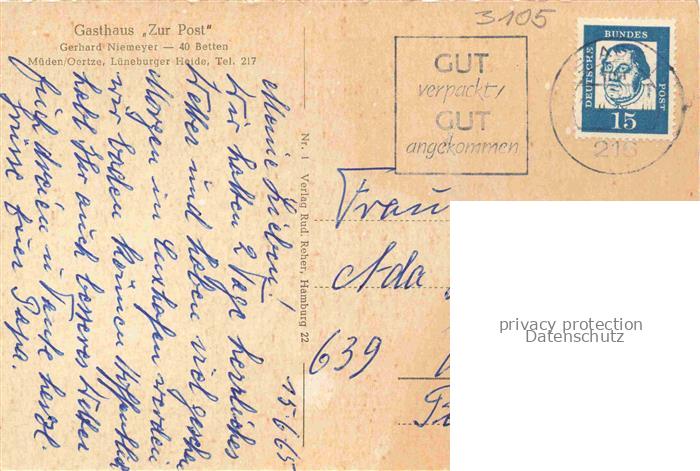 3105
Gasthaus „Zur Post"
Gerhard Niemeyer — 40 Betten
Müden/Oertze, Lüneburger Heide, Tel. 217
GUT
verpackt,
GUT
angekommen
DEUTSCHE BUNDES POST
15
216
Nr. 1 Verlag Rud. Reher, Hamburg 22
15.6.65
Meine Lieben!
Wir hatten 2 Tage herrliches
Wetter und haben viel gesehen
Morgen in Cuxhafen werden
wir baden können Hoffentlich
habt Ihr auch besseres Wetter
Euch dreien u Tante herzl.
Grüsse Euer Papa.
Frau
Ada
639
privacy protection
Datenschutz